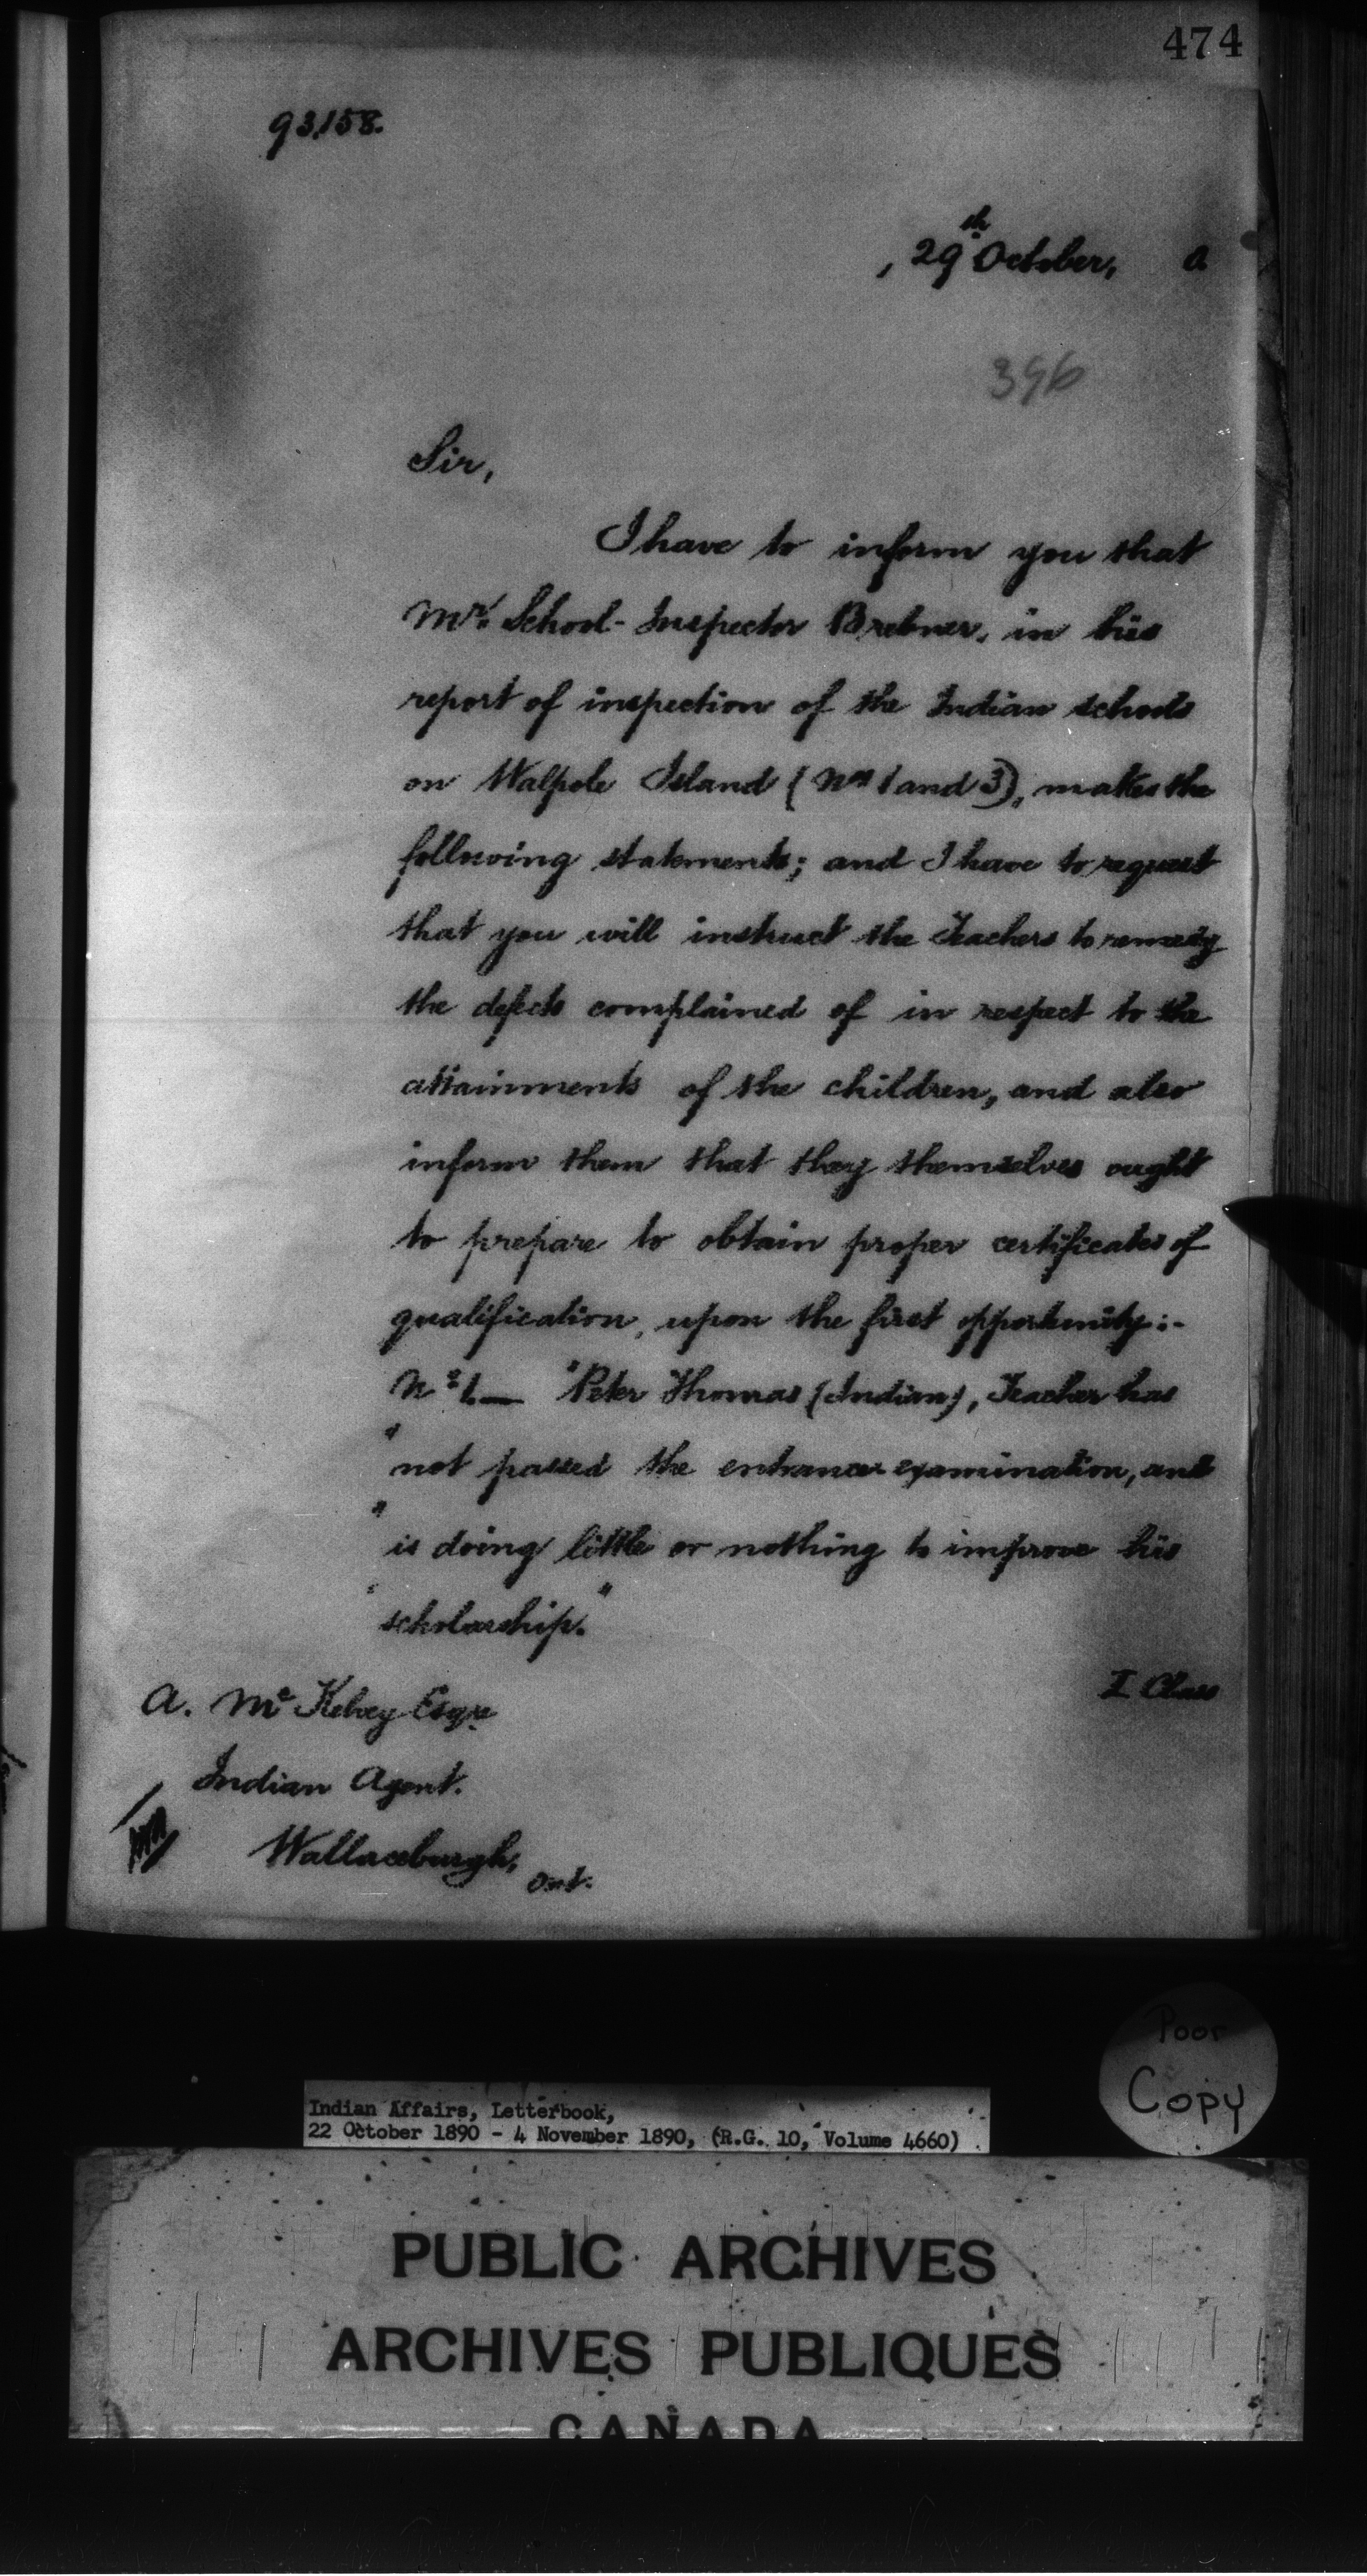 474
93,158.
, 29th October, 0
396
Sir,
I have to inform you that
Mr. School-Inspector Brebner, in his
report of inspection of the Indian schools
on Walpole Island (Nos 1 and 3), makes the
following statements; and I have to request
that you will instruct the Teachers to remedy
the defects complained of in respect to the
attainments of the children, and also
inform them that they themselves ought
to prepare to obtain proper certificates of
qualification, upon the first opportunity:-
No 1.— "Peter Thomas (Indian), Teacher has
"not passed the entrance examination, and
"is doing little or nothing to improve his
"scholarship."
I Class
A. McKelvey Esqre
Indian Agent.
Wallaceburgh,
Ont.
Poor
Copy
Indian Affairs, Letterbook,
22 October 1890 - 4 November 1890, (R.G. 10, Volume 4660)
PUBLIC ARCHIVES
ARCHIVES PUBLIQUES
CANADA